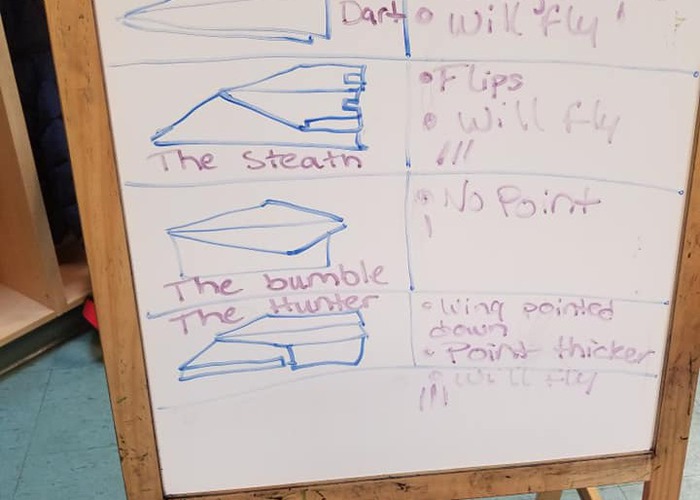 Dart
• Will fly
I
The Steath
• Flips
• Will fly
III
The bumble
• No Point
I
The Hunter
• Wing pointed
down
• Point thicker
• Will fly
III